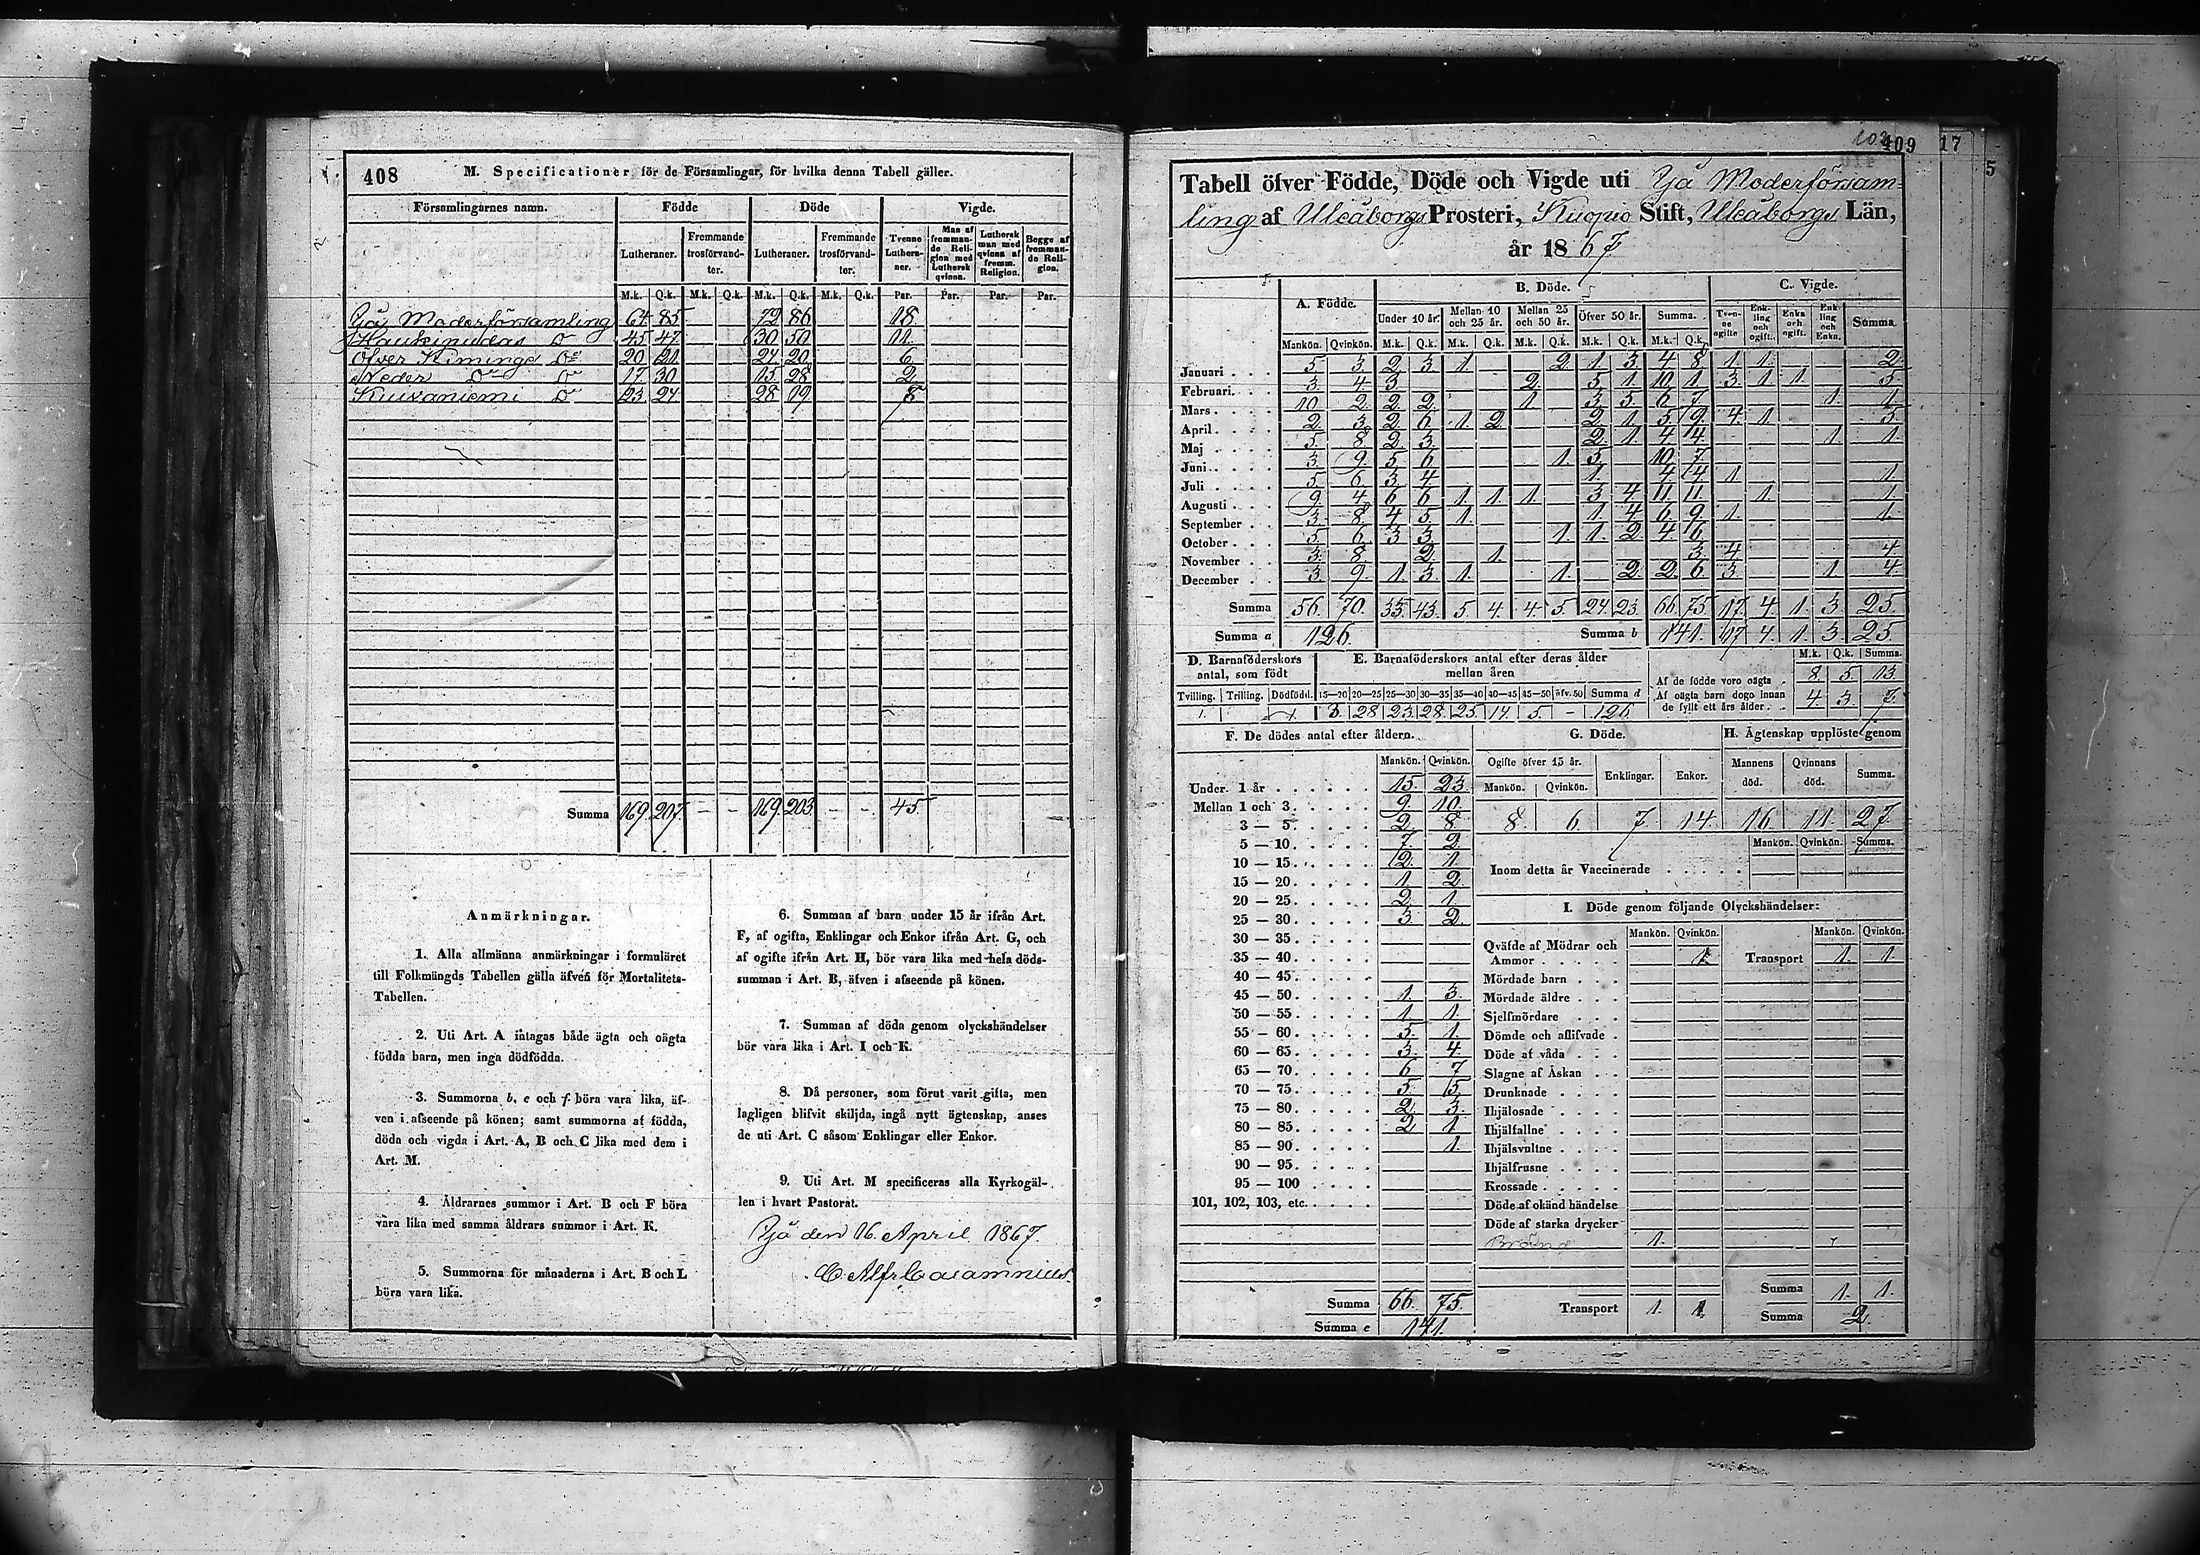 408 M. Specificationer för de Församlingar, för hvilka denna Tabell gäller.
Församlingarnes namn. Födde Döde Vigde.
Lutheraner. Fremmande trosförvandter. Lutheraner. Fremmande trosförvandter. Tvenne Lutheraner. Man af fremmande Religion med Luthersk qvinna. Luthersk man med qvinna af fremm. Religion. Begge af fremmande Religion.
M.k. Q.k. M.k. Q.k. M.k. Q.k. M.k. Q.k. Par. Par. Par. Par.
Ijå Moderförsamling 64 85 72 86 18
Haukipudas D:o 45 47 30 50 11.
Öfver Kiminge D:o 20 21 24 20 6
Neder D:o D:o 17 30 15 28 2
Kuivaniemi D:o 23 24 28 19 8
Summa 169. 207. - - 169. 203. - - 45.
Anmärkningar.
1. Alla allmänna anmärkningar i formuläret
till Folkmängds Tabellen gälla äfven för Mortalitets-
Tabellen.
2. Uti Art. A intagas både ägta och oägta
födda barn, men inga dödfödda.
3. Summorna b, e och f böra vara lika, äf-
ven i afseende på könen; samt summorna af födda,
döda och vigda i Art. A, B och C lika med dem i
Art. M.
4. Åldrarnes summor i Art. B och F böra
vara lika med samma åldrars summor i Art. K.
5. Summorna för månaderna i Art. B och L
böra vara lika.
6. Summan af barn under 15 år ifrån Art.
F, af ogifta, Enklingar och Enkor ifrån Art. G, och
af ogifte ifrån Art. H, bör vara lika med hela döds-
summan i Art. B, äfven i afseende på könen.
7. Summan af döda genom olyckshändelser
bör vara lika i Art. I och K.
8. Då personer, som förut varit gifta, men
lagligen blifvit skiljda, ingå nytt ägtenskap, anses
de uti Art. C såsom Enklingar eller Enkor.
9. Uti Art. M specificeras alla Kyrkogäl-
len i hvart Pastorat.
Ijå den 16. April 1867.
409 17
5
Tabell öfver Födde, Döde och Vigde uti Ijå Moderförsam-
ling af Uleåborgs Prosteri, Kuopio Stift, Uleåborgs Län,
år 1867
A. Födde. B. Döde. C. Vigde.
Under 10 år. Mellan 10 och 25 år. Mellan 25 och 50 år. Öfver 50 år. Summa. Tvenne ogifte Enkling och ogift. Enka och ogift. Enkling och Enka. Summa.
Mankön. Qvinkön. M.k. Q.k. M.k. Q.k. M.k. Q.k. M.k. Q.k. M.k. Q.k.
Januari 5. 3. 2 3 1 2. 1 3 4 8 1 1 2.
Februari 3 4 3 2. 5 1 10 1 3. 1 1. 5.
Mars 10 2 2 2 1. 3 5 6 7 1. 1.
April 2. 3. 2 6 1. 2 2 1 5. 9. 4. 1 5.
Maj 5 8 2 3. 2 1 4 4 1 1.
Juni 3. 9. 5 6 1. 5 10 7
Juli 5 6 3 4 1. 4 4 1 1.
Augusti 9. 4 6 6 1 1 1 3 4 11. 11. 1. 1.
September 3. 8. 4 5 1. 1. 4 6. 9. 1. 1.
October 5 6. 3 3 1. 1. 2 4 6.
November 3. 8. 2. 1. 3 4 4.
December 3. 9. 1. 3 1. 1. 2. 2. 6. 3. 1. 4.
Summa 56. 70. 33. 43. 5. 4. 4. 5. 24. 23. 66. 75. 17. 4. 1. 3. 25.
Summa a 126. Summa b 141. 17 4. 1. 3. 25.
D. Barnaföderskors antal, som födt E. Barnaföderskors antal efter deras ålder mellan åren
M.k. Q.k. Summa.
Af de födde voro oägta 8. 5 13.
Af oägta barn dogo innan de fyllt ett års ålder 4. 3. 7.
Tvilling. Trilling. Dödfödd. 15—20 20—25 25—30 30—35 35—40 40—45 45—50 öfv. 50 Summa d
1. 1. 3. 28 23. 28. 25. 14. 5. - 126
F. De dödes antal efter åldern.
Mankön. Qvinkön.
Under 1 år 15. 23.
Mellan 1 och 3 9. 10.
3 — 5 2. 8.
5 — 10 7. 2.
10 — 15 2. 1.
15 — 20 1. 2.
20 — 25 2. 1
25 — 30 3. 2.
30 — 35
35 — 40
40 — 45
45 — 50 1. 3.
50 — 55 1 1.
55 — 60 5. 1.
60 — 65 3. 4.
65 — 70 6 7
70 — 75 5. 5.
75 — 80 2. 3.
80 — 85 2 1.
85 — 90 1.
90 — 95
95 — 100
101, 102, 103, etc.
Summa 66. 75.
Summa e 141.
G. Döde. H. Ägtenskap upplöste genom
Ogifte öfver 15 år. Enklingar. Enkor. Mannens död. Qvinnans död. Summa.
Mankön. Qvinkön.
8. 6. 7. 14. 16. 11. 27.
Mankön. Qvinkön. Summa.
Inom detta år Vaccinerade
I. Döde genom följande Olyckshändelser:
Mankön. Qvinkön. Mankön. Qvinkön.
Qväfde af Mödrar och Ammor 1. Transport 1. 1.
Mördade barn
Mördade äldre
Sjelfmördare
Dömde och aflifvade
Döde af våda
Slagne af Åskan
Drunknade
Ihjälosade
Ihjälfallne
Ihjälsvultne
Ihjälfrusne
Krossade
Döde af okänd händelse
Döde af starka drycker
1.
Summa 1. 1.
Transport 1. 1. Summa 2.